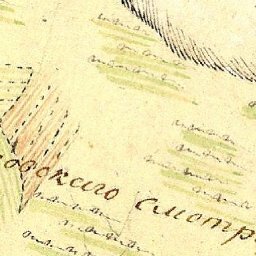 овскаго смотр